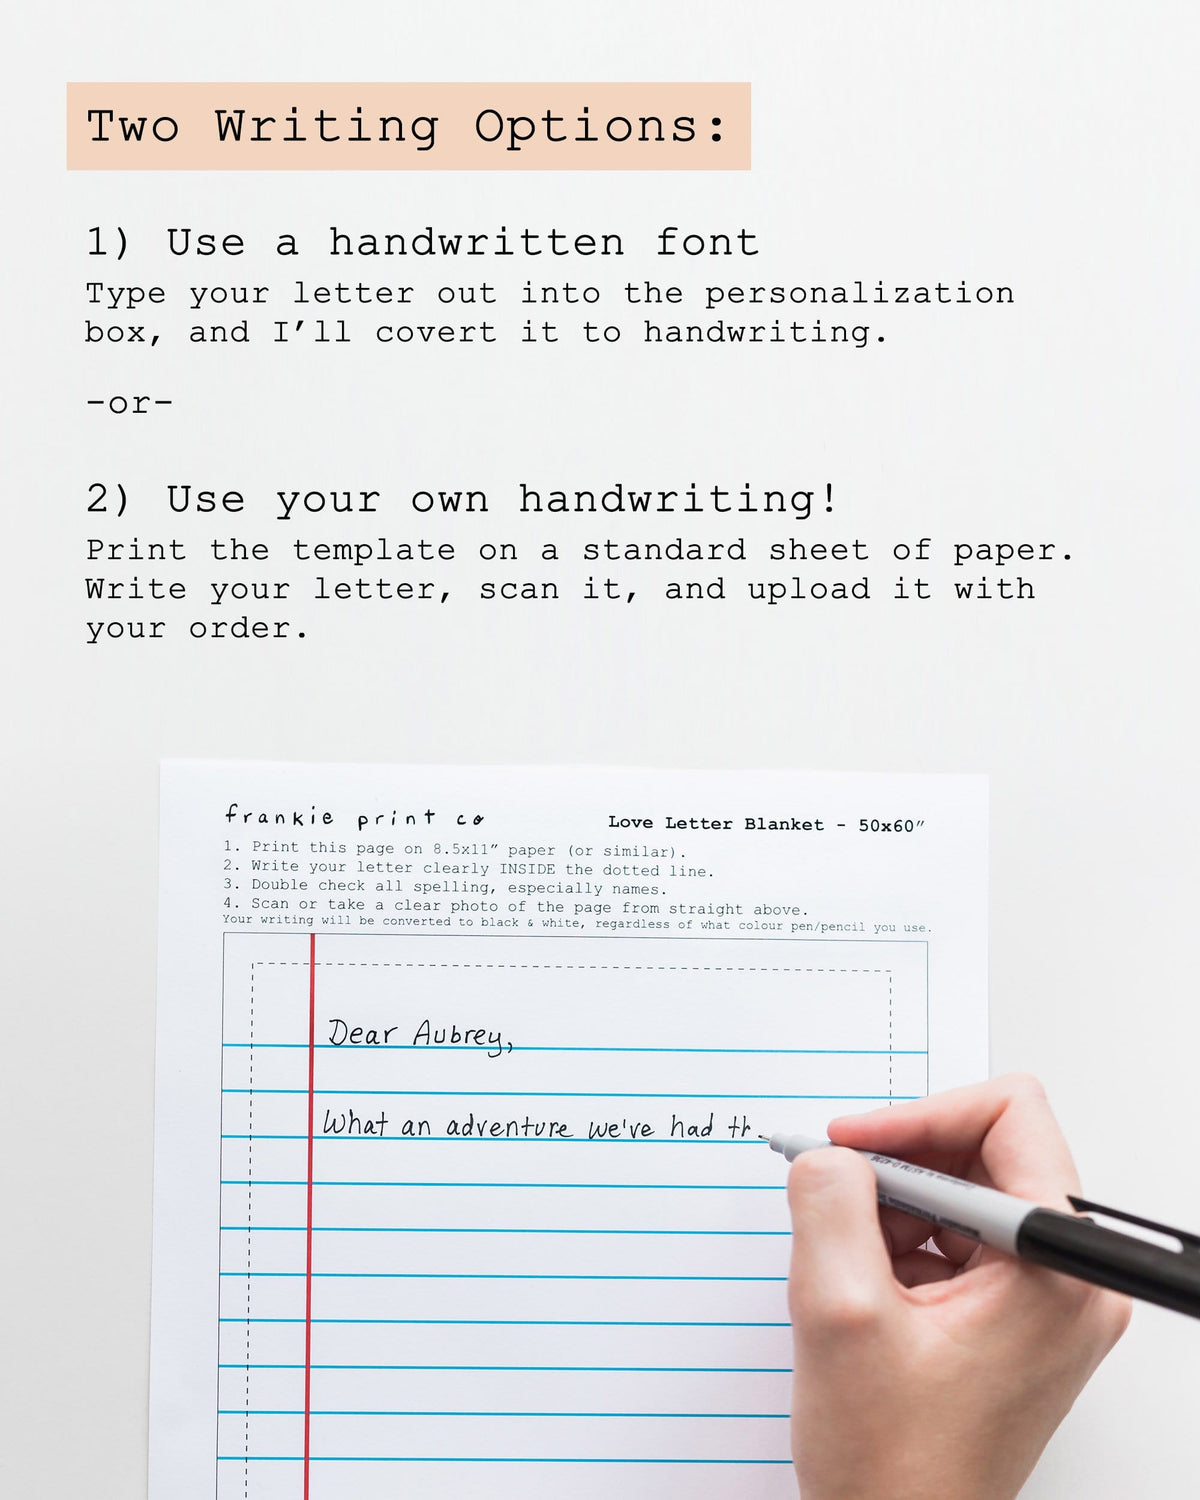 Two Writing Options:
1) Use a handwritten font
Type your letter out into the personalization
box, and I’ll covert it to handwriting.
-or-
2) Use your own handwriting!
Print the template on a standard sheet of paper.
Write your letter, scan it, and upload it with
your order.
frankie print co
Love Letter Blanket - 50x60”
1. Print this page on 8.5x11” paper (or similar).
2. Write your letter clearly INSIDE the dotted line.
3. Double check all spelling, especially names.
4. Scan or take a clear photo of the page from straight above.
Your writing will be converted to black & white, regardless of what colour pen/pencil you use.
Dear Aubrey,
What an adventure we've had th